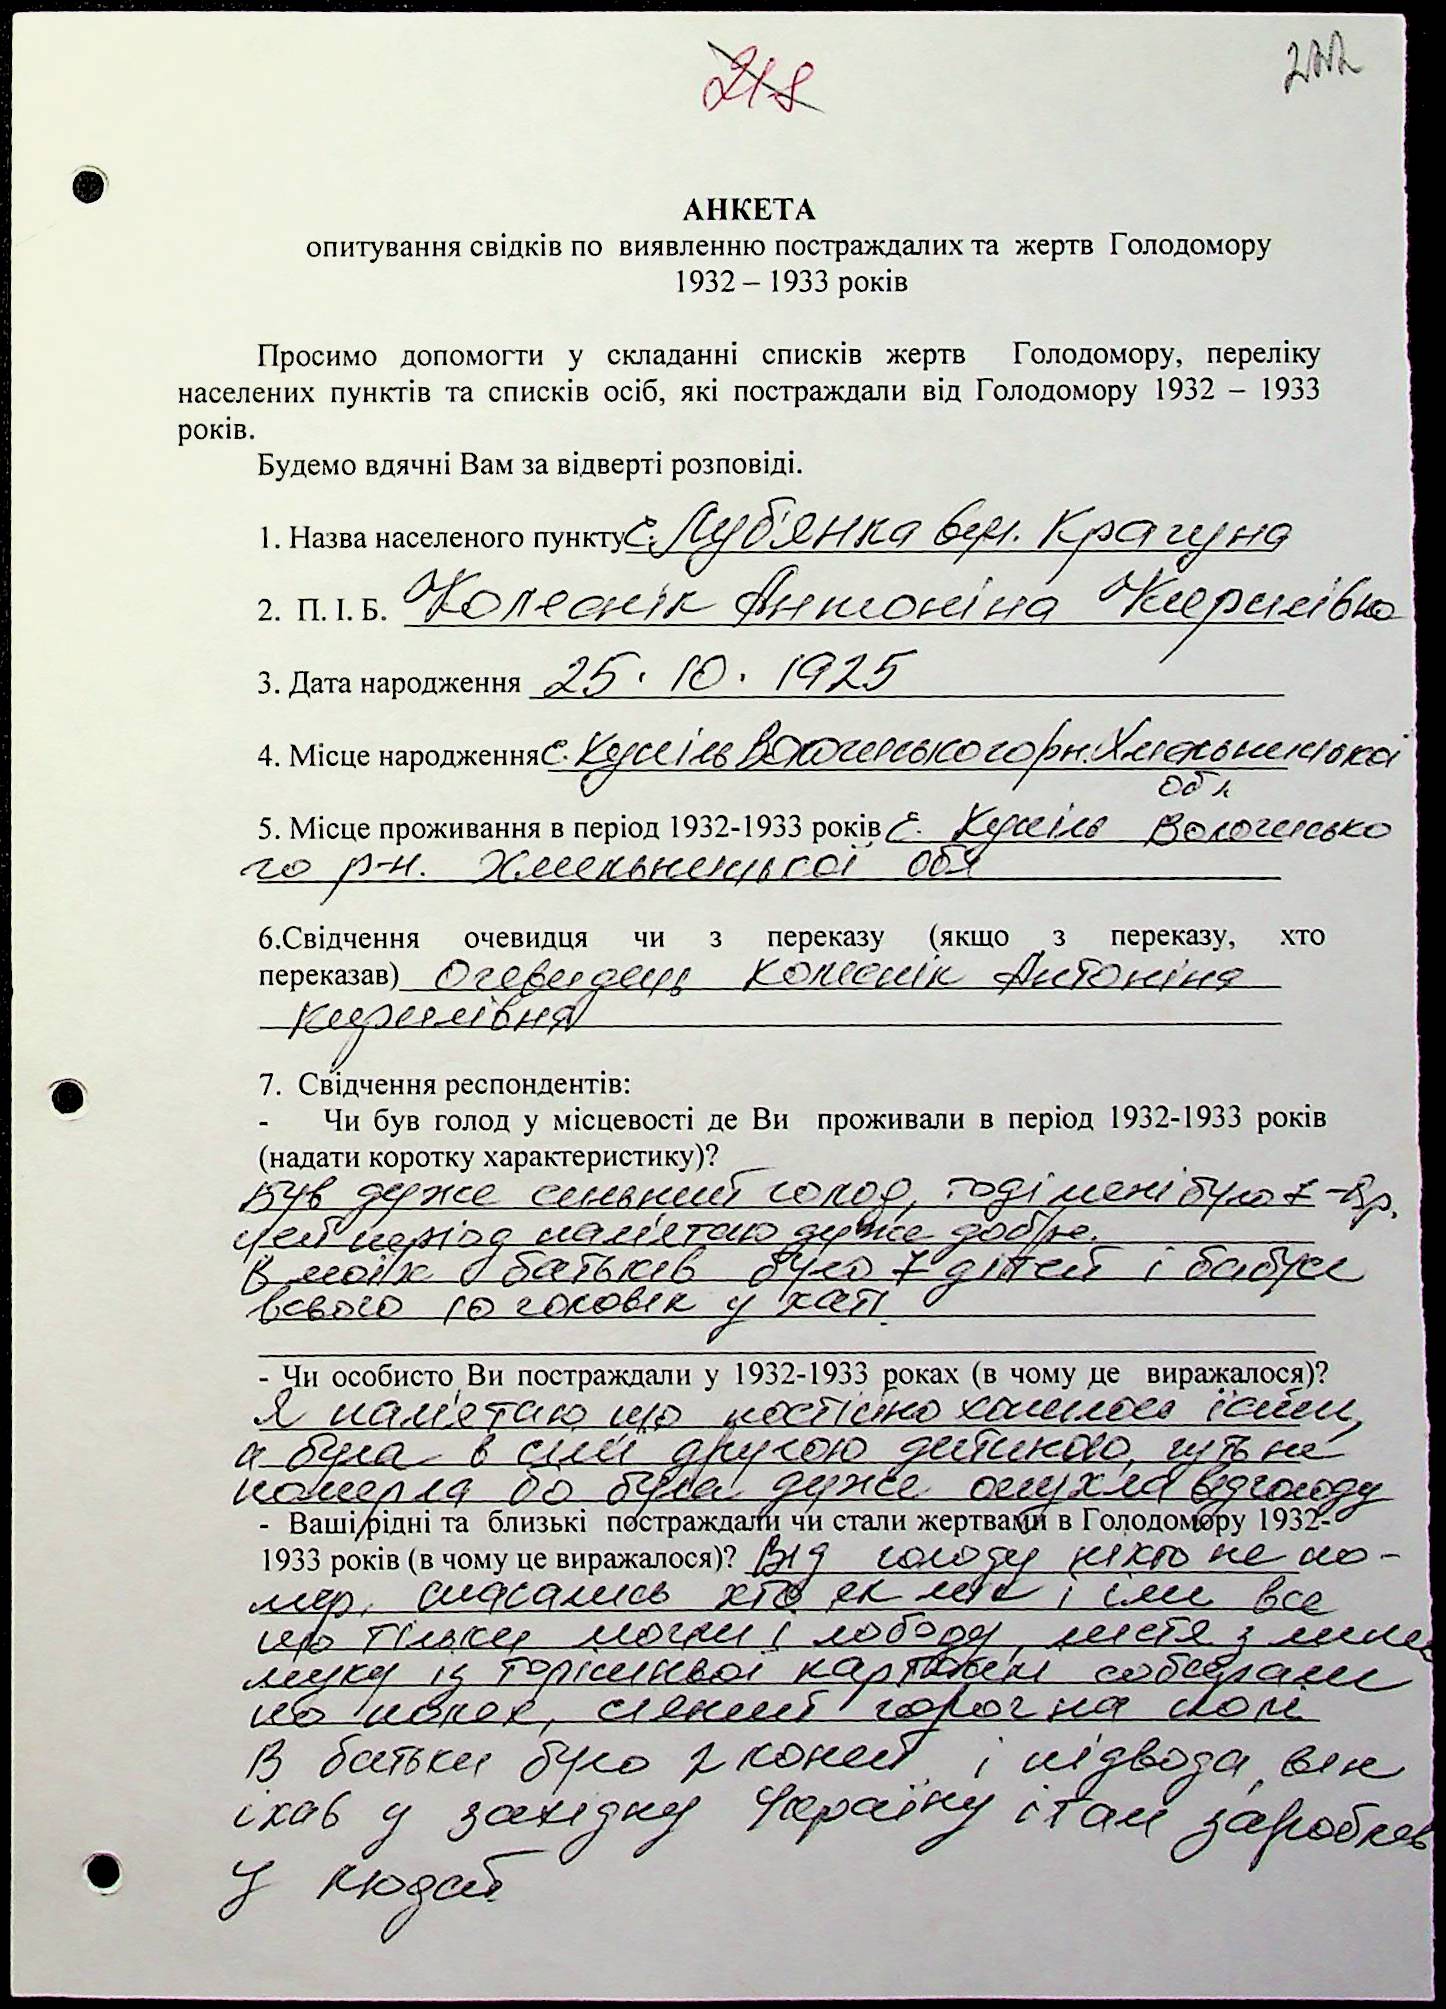 218
222
АНКЕТА
опитування свідків по виявленню постраждалих та жертв Голодомору
1932 – 1933 років
Просимо допомогти у складанні списків жертв Голодомору, переліку
населених пунктів та списків осіб, які постраждали від Голодомору 1932 – 1933
років.
Будемо вдячні Вам за відверті розповіді.
1. Назва населеного пункту с. Луб'янка вул. Крагуна
2. П. І. Б. Колеснік Антоніна Кирилівна
3. Дата народження 25. 10. 1925
4. Місце народження с. Куміль Волочиського рн. Хмельницької
обл
5. Місце проживання в період 1932-1933 років с. Куміль Волочисько
го р-н. Хмельницької обл
6.Свідчення очевидця чи з переказу (якщо з переказу, хто
переказав) Очевидець Колеснік Антоніна
Кирилівна
7. Свідчення респондентів:
- Чи був голод у місцевості де Ви проживали в період 1932-1933 років
(надати коротку характеристику)?
Був дуже сильний голод, тоді мені було 7 -вр.
цей період пам'ятаю дуже добре.
В моїх батьків було 7 дітей і бабуся
всього 10 чоловік у хаті
- Чи особисто Ви постраждали у 1932-1933 роках (в чому це виражалося)?
Я пам'ятаю що постійно хотілось їсти,
я була в сім'ї другою дитиною, чуть не
померла бо була дуже опухла від голоду
- Ваші рідні та близькі постраждали чи стали жертвами в Голодомору 1932-
1933 років (в чому це виражалося)? Від голоду ніхто не по-
мер, спасались хто як міг і їли все
що тільки могли і лободу, листя з липи
муку із торішньої картоплі собирали
по полях, сіяний горох на полі
В батьки було 2 коней і підвода він
їхав у західну Україну і там заробляв
у людей